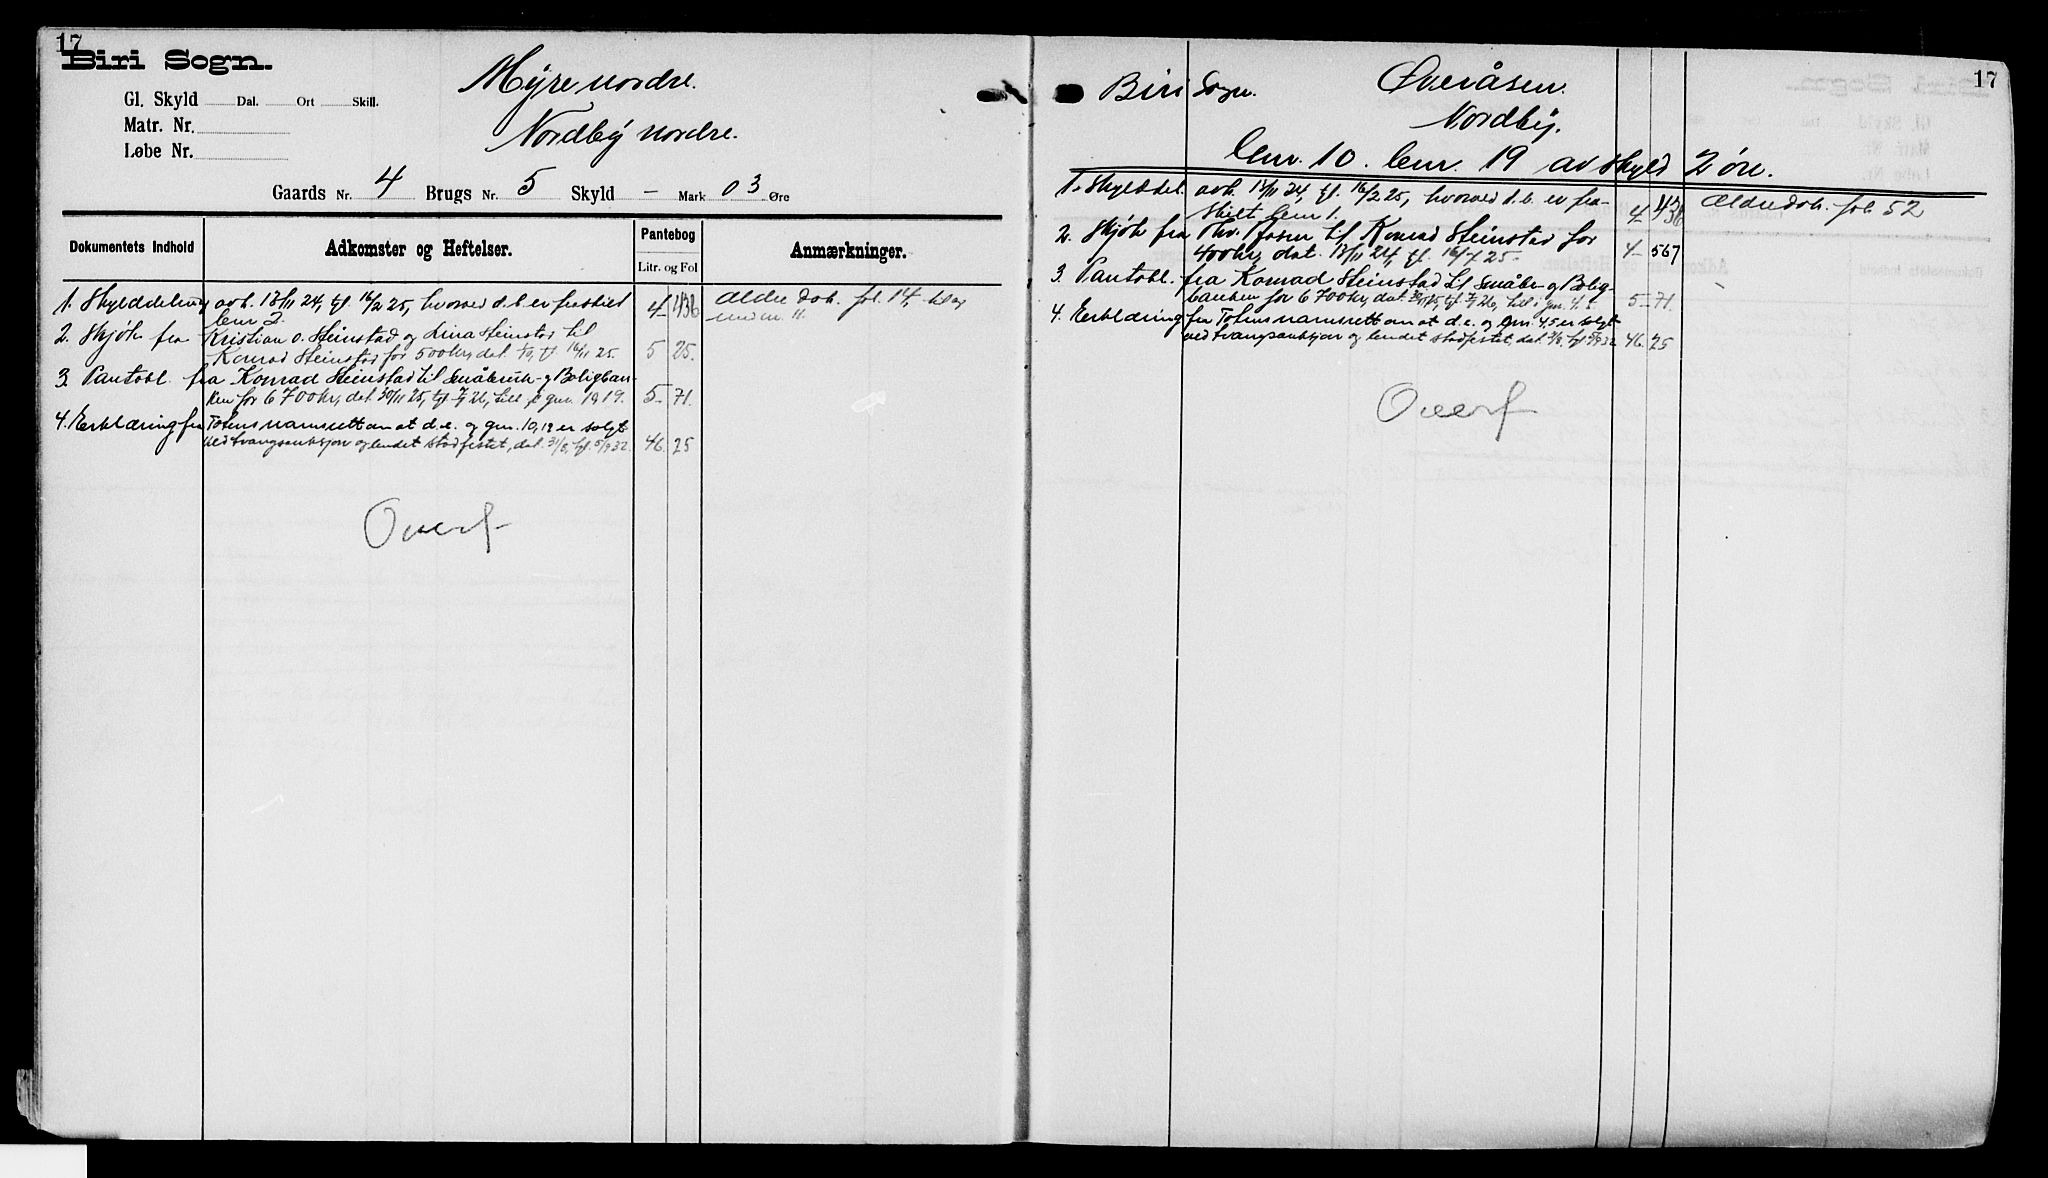 17
Biri Sogn.
Gl. Skyld Dal. Ort Skill.
Matr. Nr.
Løbe Nr.
Myre nordre.
Nordby nordre.
Gaards Nr. 4 Brugs Nr. 5 Skyld — Mark 03 Øre
Dokumentets Indhold Adkomster og Heftelser. Pantebog Anmærkninger.
Litr. og Fol
1. Skylddeling avh. 13/11 24, tgl. 16/2 25, hvorved d.b. er fraskilt 4 436 Ældre dok. fol. 14,
bnr 2.
2. Skjøte fra Kristian O. Steinstad og Lina Steinstad til
Konrad Steinstad for 500 kr, dat. tgl. 16/11 25. 5 25.
3. Pantobl. fra Konrad Steinstad til Småbruk- og Boligban-
ken for 6700 kr, dat. 30/11 25, tgl. 7/1 26, till. gnr. 10,19. 5 71.
4. Erklæring fra Totens namsrett om at d.e. og gnr. 10,19 er solgt
ved tvangsauksjon og budet stadfestet, dat. 31/8, tgl. 5/9 32. 46. 25
Overf
17
Biri Sogn.
Øveråsen.
Nordby.
Gnr. 10. Bnr. 19 av skyld 2 øre.
1. Skylddel. avh. 13/11 24, tgl. 16/2 25, hvorved d.b. er fra- Ældre dok. fol. 52
skilt bnr 1. 4 436
2. Skjøte fra Chr. til Konrad Steinstad for
400 kr, dat. 13/11 24, tgl. 16/7 25. 4 567
3. Pantobl. fra Konrad Steinstad til Småbr. og Bolig-
banken for 6700 kr, dat. 30/11 25, tgl. 7/1 26, till. i gnr. 4.5. 5 71.
4. Erklæring fra Totens namsrett om at d.e. og gnr. 4,5 er solgt
ved tvangsauksjon og budet stadfestet, dat. 31/8, tgl. 5/9 32. 46. 25
Overf